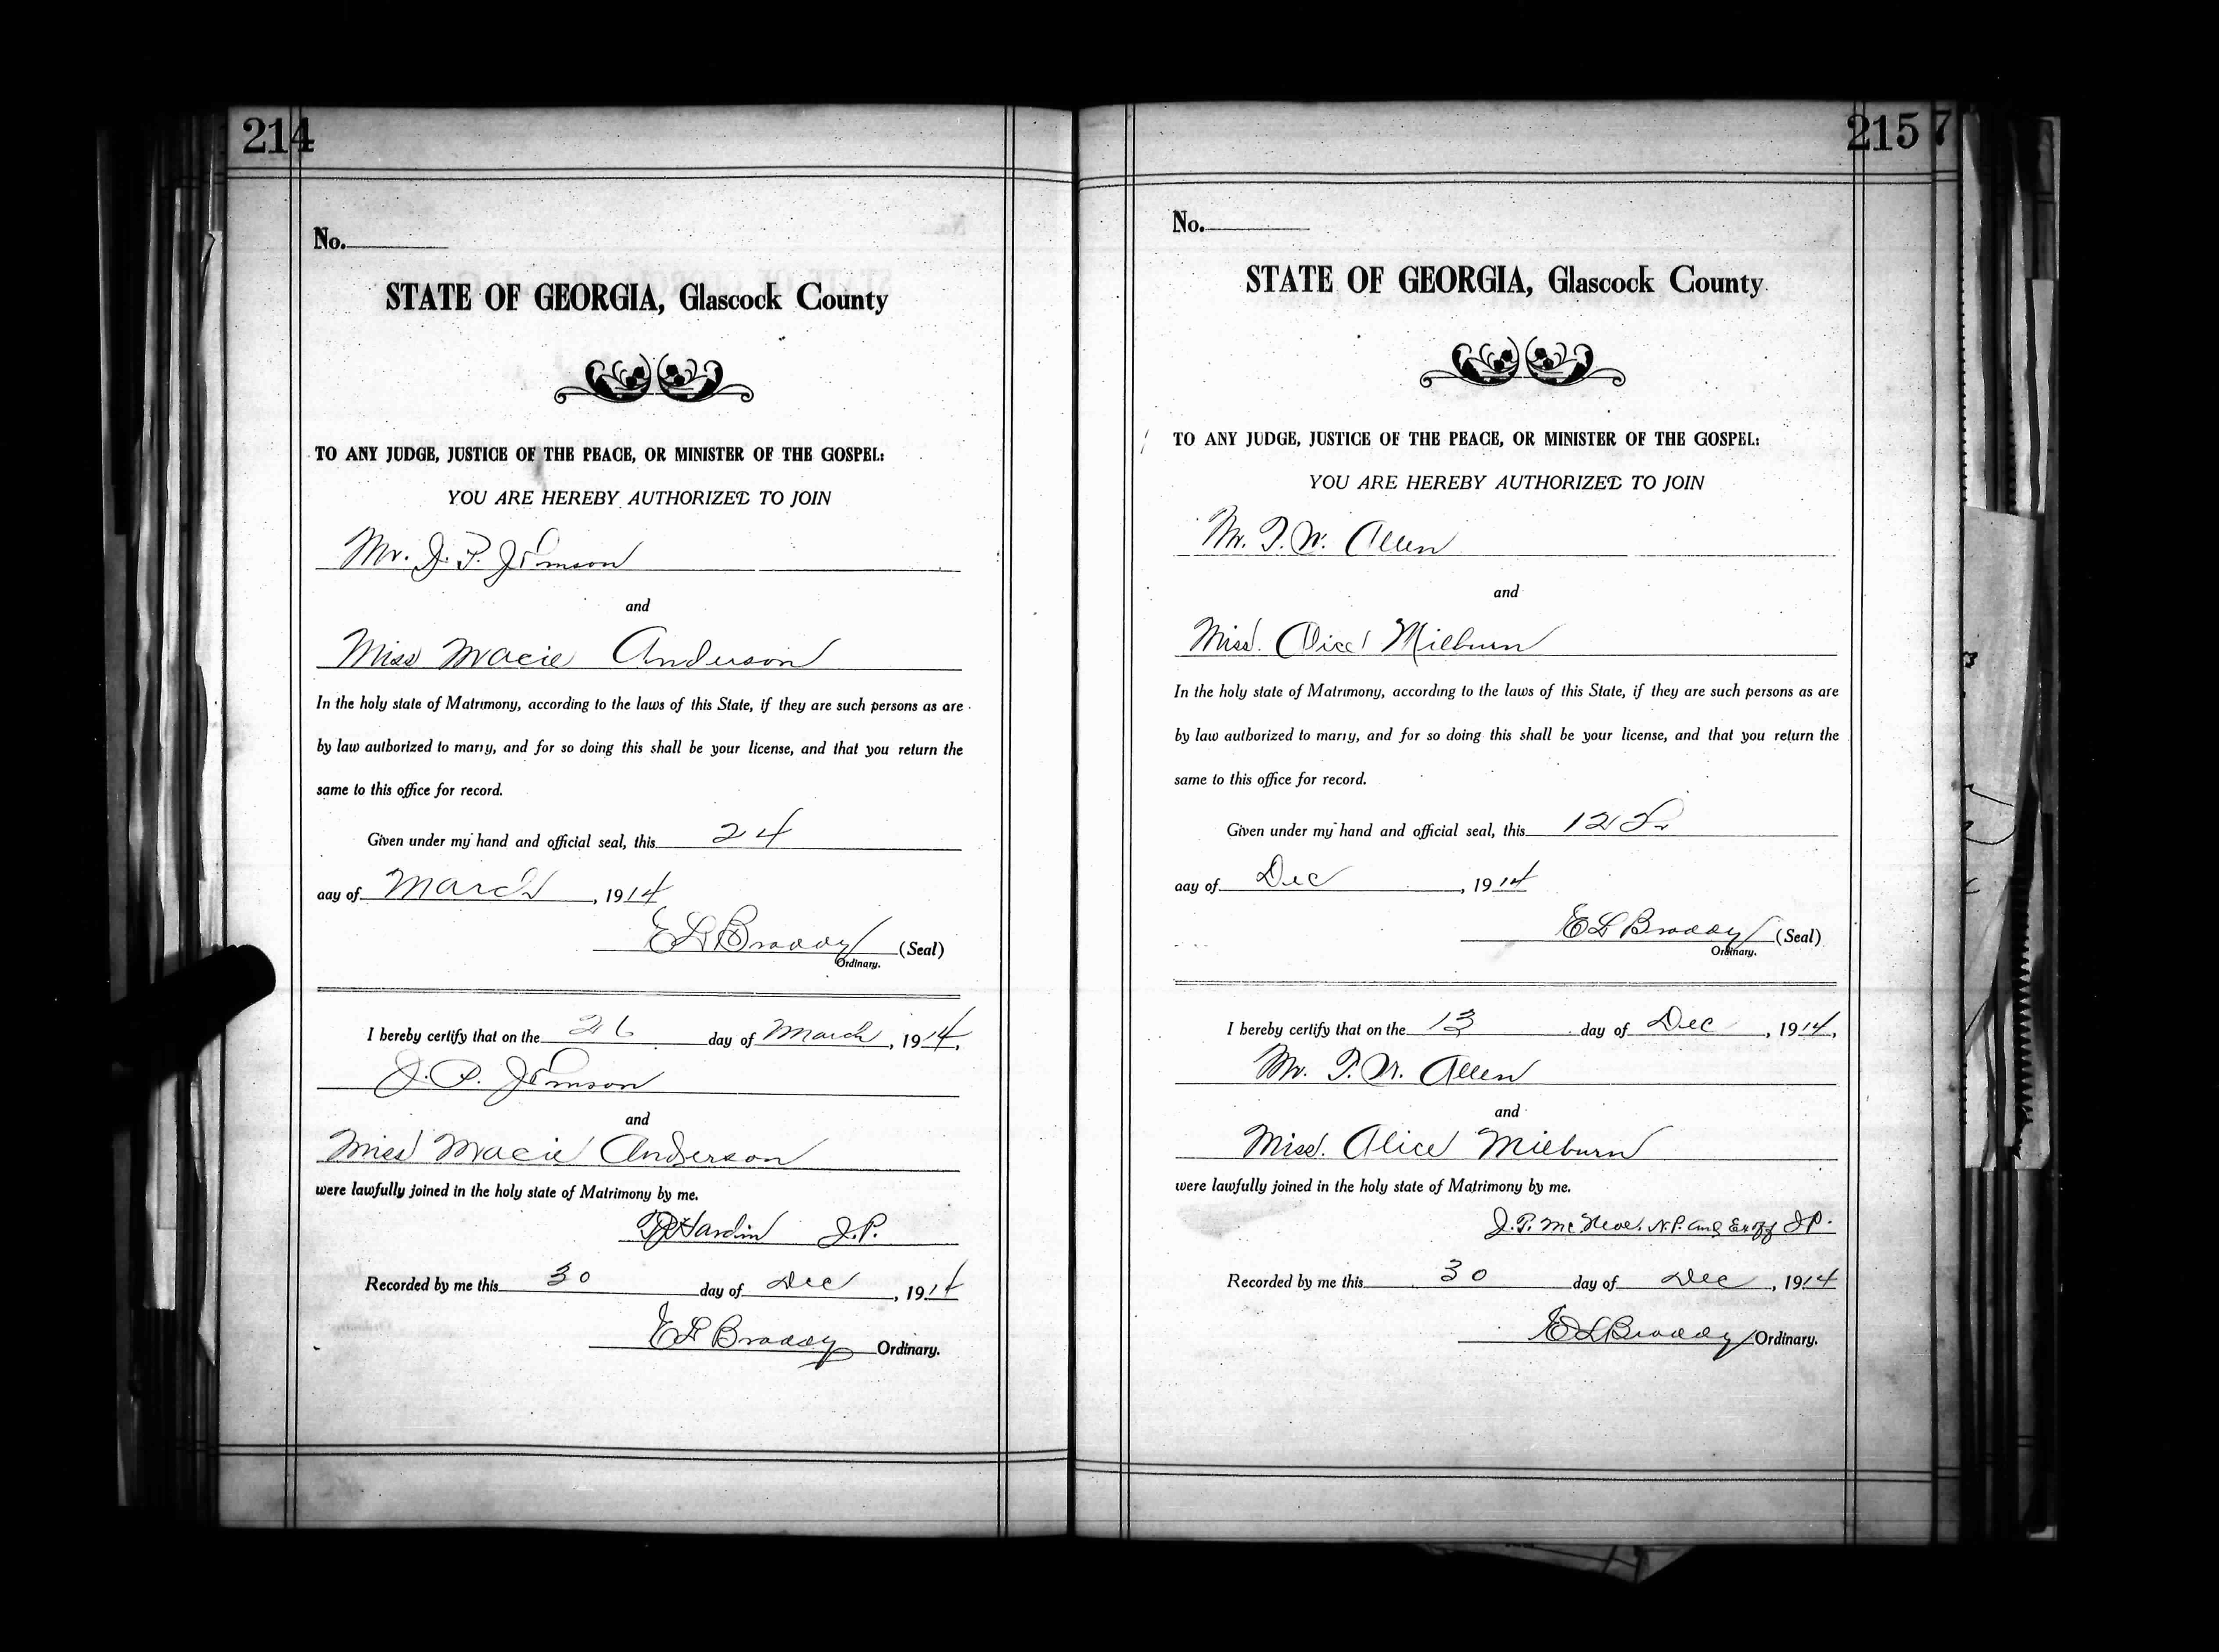 214
No.
STATE OF GEORGIA, Glascock County
TO ANY JUDGE, JUSTICE OF THE PEACE, OR MINISTER OF THE GOSPEL:
YOU ARE HEREBY AUTHORIZED TO JOIN
Mr. J. P. Johnson
and
Miss Macie Anderson
In the holy state of Matrimony, according to the laws of this State, if they are such persons as are
by law authorized to marry, and for so doing this shall be your license, and that you return the
same to this office for record.
Given under my hand and official seal, this 24
day of March, 1914
E L Braddy (Seal)
Ordinary.
I hereby certify that on the 26 day of March, 1914,
J. P. Johnson
and
Miss Macie Anderson
were lawfully joined in the holy state of Matrimony by me.
Hardin J.P.
Recorded by me this 30 day of Dec, 1914
E L Braddy Ordinary.
215 7
No.
STATE OF GEORGIA, Glascock County
TO ANY JUDGE, JUSTICE OF THE PEACE, OR MINISTER OF THE GOSPEL:
YOU ARE HEREBY AUTHORIZED TO JOIN
Mr. T. W. Allen
and
Miss. Alice Milburn
In the holy state of Matrimony, according to the laws of this State, if they are such persons as are
by law authorized to marry, and for so doing this shall be your license, and that you return the
same to this office for record.
Given under my hand and official seal, this 12
day of Dec, 1914
E L Braddy (Seal)
Ordinary.
I hereby certify that on the 13 day of Dec, 1914,
Mr. T. W. Allen
and
Miss. Alice Milburn
were lawfully joined in the holy state of Matrimony by me.
J. T. N.P. and J.P.
Recorded by me this 30 day of Dec, 1914
E L Braddy Ordinary.